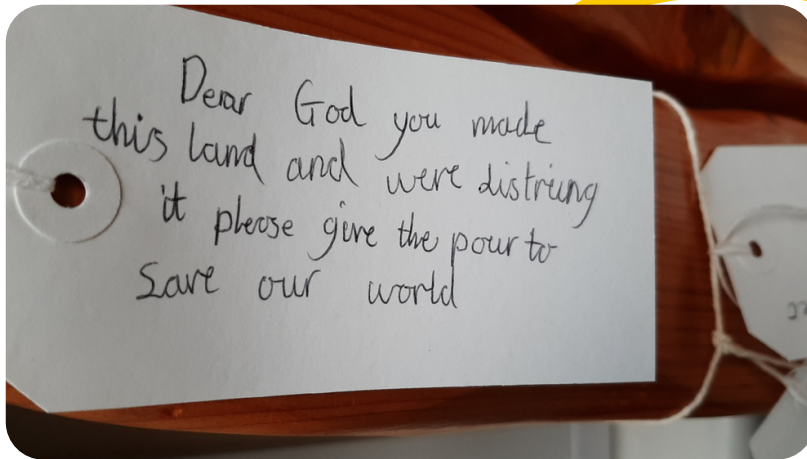 Dear God you made
this land and were distriing
it please give the pour to
Save our world